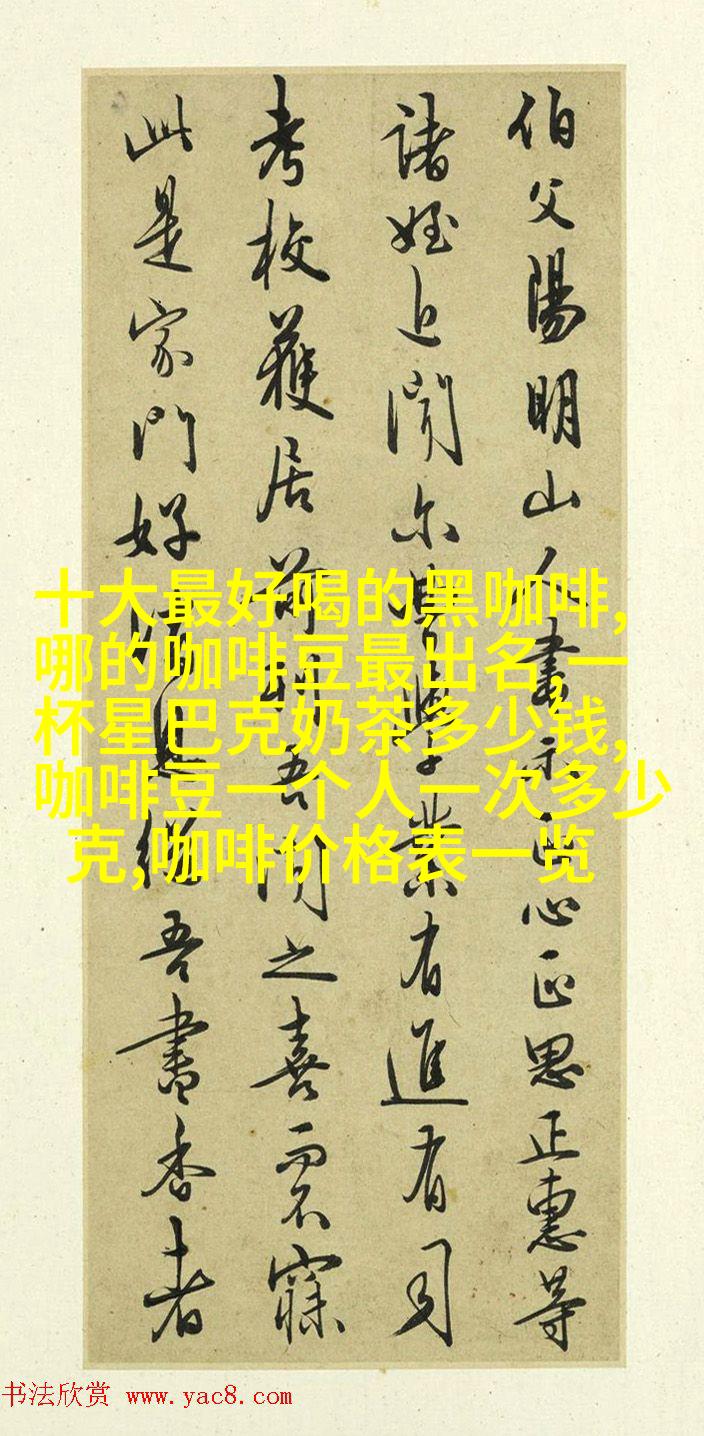 伯父陽明山人書示正心正思正惠等
諸姪近聞尔曹學業有進有司
考校獲居前列吾聞之喜而不寐
此是家門好消息繼吾書香者
十大最好喝的黑咖啡,
哪的咖啡豆最出名,一
杯星巴克奶茶多少钱,
咖啡豆一个人一次多少
克,咖啡价格表一览
书法欣赏 www.yac8.com